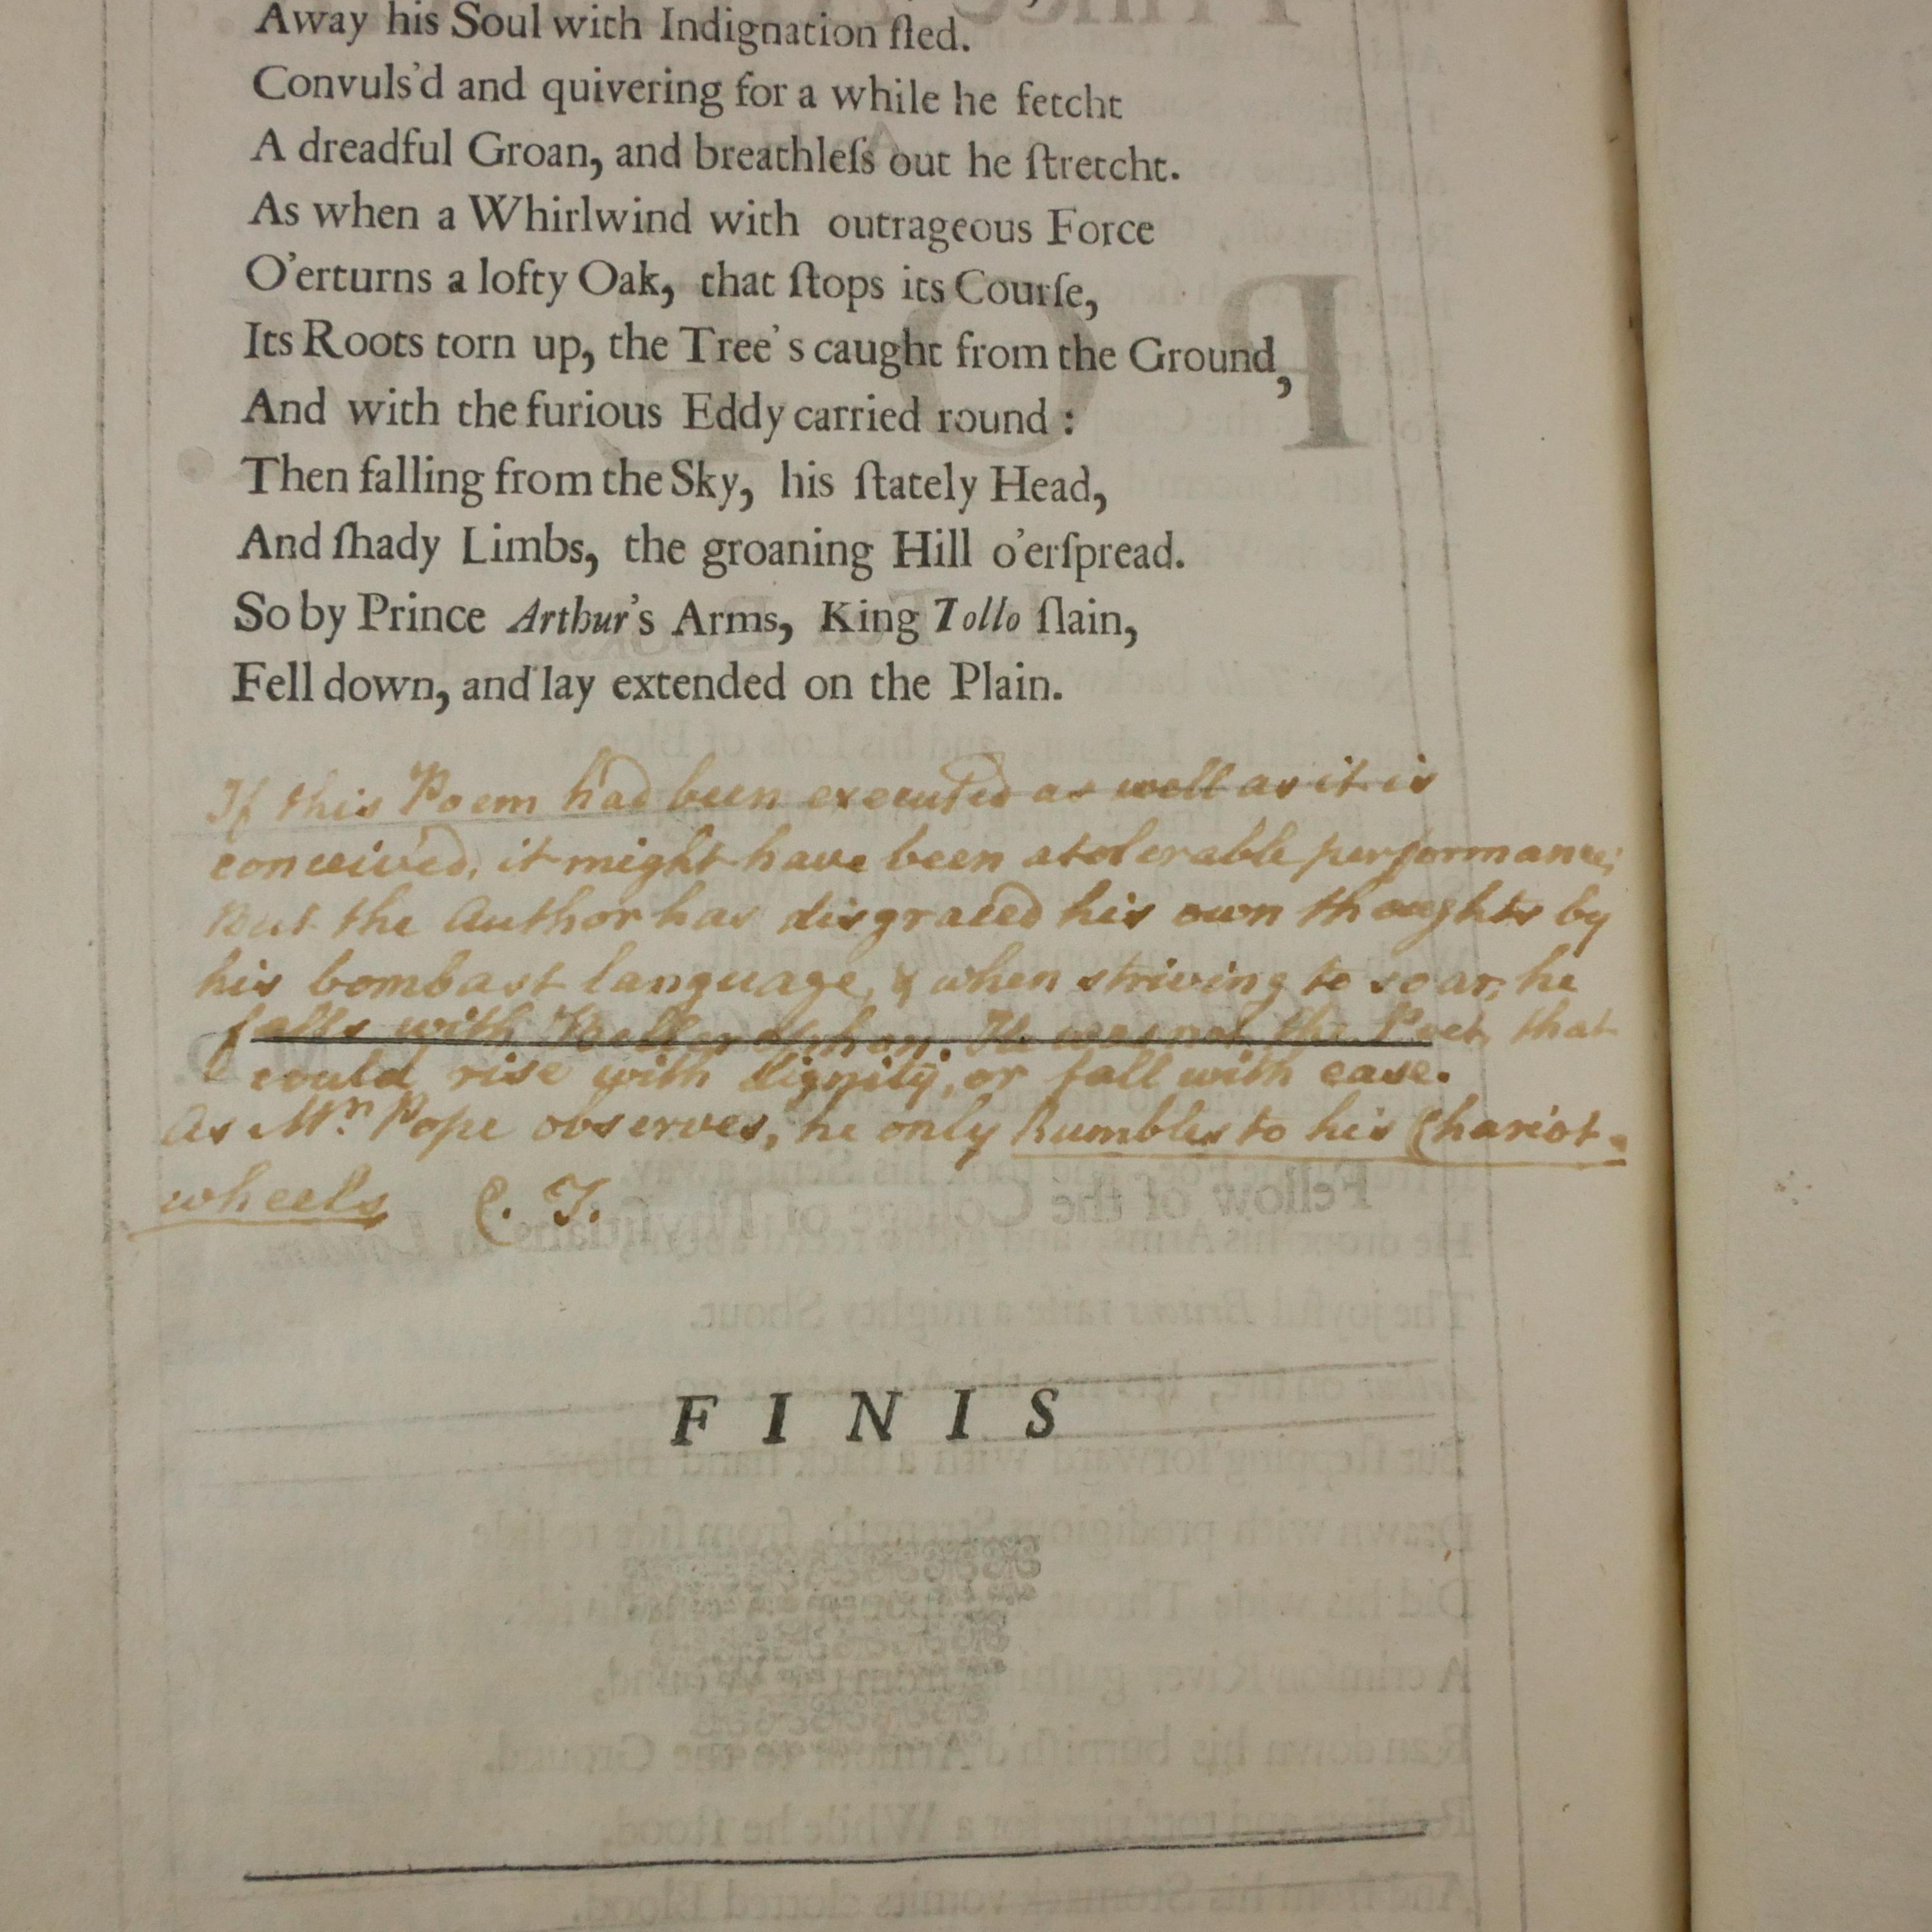 Away his Soul with Indignation fled.
Convuls'd and quivering for a while he fetcht
A dreadful Groan, and breathleſs out he ſtretcht.
As when a Whirlwind with outrageous Force
O'erturns a lofty Oak, that ſtops its Courſe,
Its Roots torn up, the Tree's caught from the Ground,
And with the furious Eddy carried round :
Then falling from the Sky, his ſtately Head,
And ſhady Limbs, the groaning Hill o'erſpread.
So by Prince Arthur's Arms, King Tollo ſlain,
Fell down, and lay extended on the Plain.
If this Poem had been executed as well as it is
conceived, it might have been a tolerable performance;
But the Author has disgraced his own thoughts by
his bombast language, & when striving to soar, he
falls with Bellerophon. He was not the Poet, that
could rise with dignity, or fall with ease.
As Mr. Pope observes, he only Rumbles to his Chariot-
wheels C. T.
F I N I S